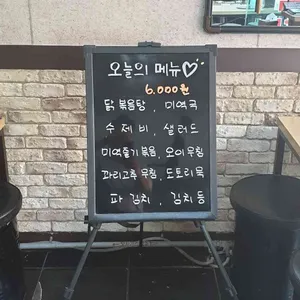 오늘의 메뉴♡
6.000원
닭볶음탕, 미역국
수제비, 샐러드
미역줄기볶음, 오이무침
꽈리고추무침, 도토리묵
파김치, 김치등